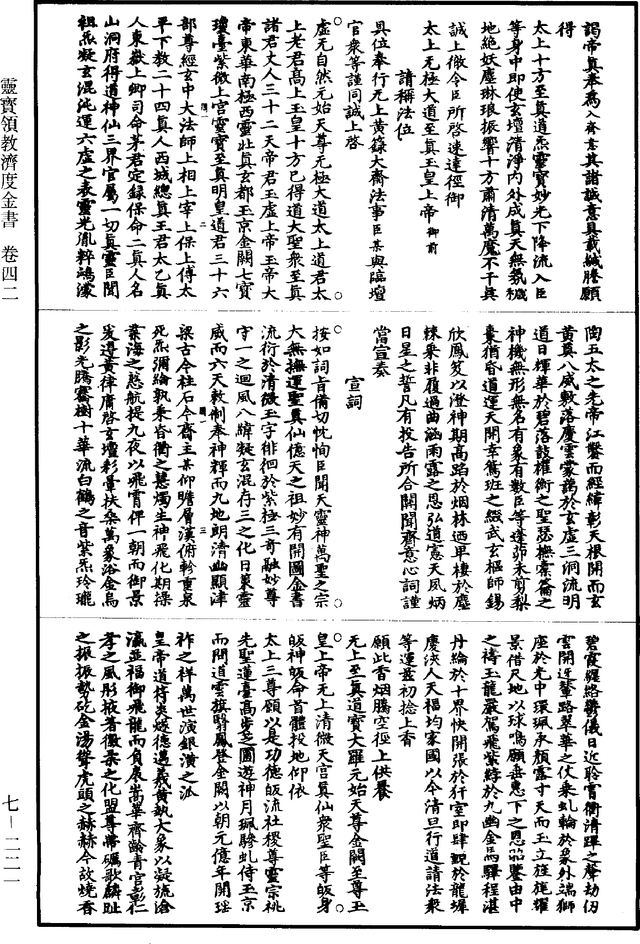 謁帝真奉爲入齊意某諸誠意具載緘謄願
得
太上十方至真道炁靈寶妙光下降流入臣
等身中即使玄壇清淨內外成真天無氛穢
地絕妖塵琳琅振響十方肅清萬魔不干真
誠上徹令臣所啓速達徑御
太上無極大道至真玉皇上帝 御前
請稱法位
具位奉行無上黃籙大齋法事臣某與臨壇
官衆等謹同誠上啓
虛无自然元始天尊无極大道太上道君太
上老君高上玉皇十方已得道大聖衆至真
諸君丈人三十二天帝君玉虛上帝玉帝大
帝東華南極西靈北真玄都玉京金闕七寶
瓊臺紫微上宮靈寶至真明皇道君三十六
部尊經玄中大法師上相上宰上保上傅太
平下教二十四真人西城總真王君太乙真
人東嶽上卿司命茅君定錄保命二真人名
山洞府得道神仙三界官屬一切真靈臣聞
祖炁凝玄混沌運六虛之表靈光胤粹鴻濛
陶五太之先帝江鑿而經緯彰天根開而玄
黃奠八威敷落慶雲蒙藹於玄虛三洞流明
道日輝華於碧落鼓權衡之聖瑟撫橐籥之
神機無形無名有象有數臣等蓬茆未剪梨
棗猶昏道運天開幸篤班之綴武玄樞師錫
欣鳳笈以澄神期高蹈於烟林迺卑棲於塵
棘乘非履過曲涵雨露之恩弘道憲天夙炳
日星之誓凡有投告所合關聞齋意心詞謹
當宣奏
宣詞
按如詞旨備切忱恂臣聞天靈神萬聖之宗
大無撫運聖真仙億天之祖妙有開圖金書
流衍於清微玉字徘徊於紫極三奇融妙尊
守一之迴風八緯凝玄混存三之化日策靈
威而六天敕制奉神輝而九地朗清幽顯津
梁古今柱石今齋主某仰瞻層漢俯軫重泉
死炁彌綸執乘昏衢之慧燭生神飛化期操
業海之慈航提九夜以飛霄俾一朝而御景
爰遵黃律廣啓玄壇彩暈扶桑萬象浴金烏
之影光騰騫樹十華流白鶴之音紫炁玲瓏
碧霞縵絡鬱儀日近聆霄衢清蹕之聲劫仞
雲開迓輦路翠華之仗乘虬輪於象外端獅
座於光中環珮承顏露寸天而玉立旌旄耀
景借尺地以球鳴願垂惠下之恩茹鑒由中
之禱玉龍嚴駕飛紫綍於九幽金馬驛程湛
丹綸於十界快開張於犴室即肆覲於龍墀
慶浹人天福均家國以今清旦行道請法衆
等運茲初捻上香
願此香烟騰空徑上供養
无上至真道寶大羅元始天尊金闕至尊玉
皇上帝无上清微天宮真仙衆聖臣等皈身
皈神皈命首體投地仰依
太上三尊願以是功德皈流社稷尊靈宗祧
先聖蓮臺高步芝圃遊神月珮驂虬侍玉京
而問道雲旗翳鳳登金闕以朝元億年開瑤
祚之祥萬世演銀潢之派
皇帝道符炎燧德邁羲黃執大象以凝旒滄
瀛並福御飛龍而負扆嵩華齊齡青宮彰仁
孝之風彤掖著徽柔之化盟尊帶礪歌麟趾
之振振勢屹金湯聲虎頭之赫赫今故燒香
靈寶領教濟度金書 卷四二
七－二二一